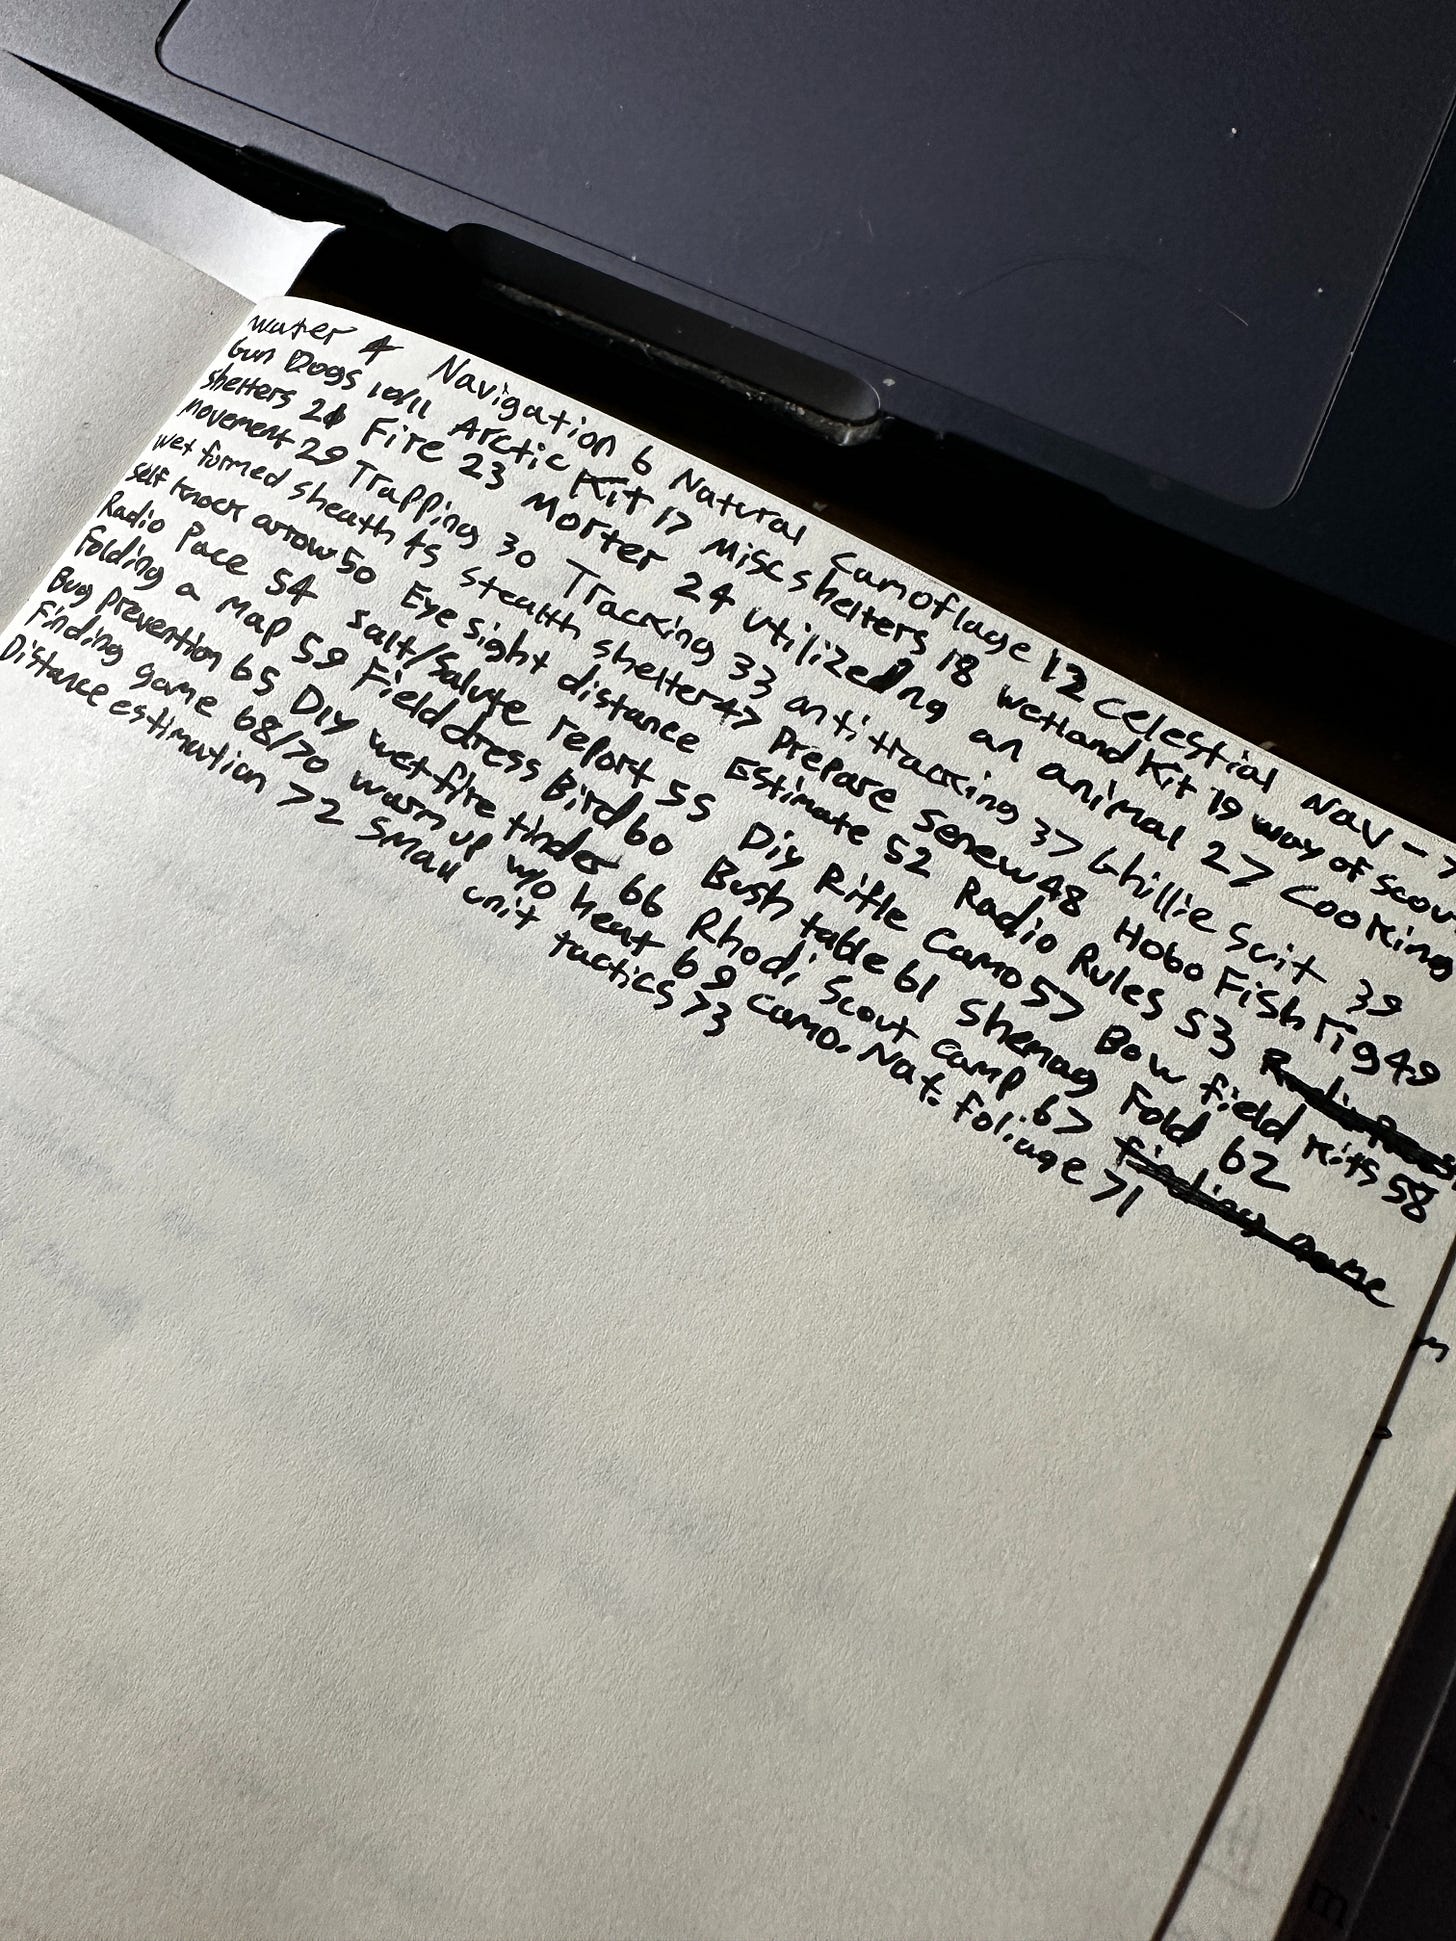 water 4 Navigation 6 Natural Camoflage 12 Celestial Nav - 7
Gun Dogs 10/11 Arctic Kit 17 Misc shelters 18 wetland Kit 19 way of scout
shelters 21 Fire 23 Morter 24 Utilizeing an animal 27 Cooking
movement 29 Trapping 30 Tracking 33 antitracking 37 Ghillie Suit 39
wet formed sheath 45 stealth shelter 47 Prepare Senew 48 Hobo Fish rig 49
self knock arrow 50 Eye sight distance Estimate 52 Radio Rules 53
Radio Pace 54 Salt/Salute report 55 Diy Rifle Camo 57 Bow field kits 58
folding a Map 59 Field dress Bird 60 Bush table 61 Shemag Fold 62
Bug prevention 65 Diy wet fire tinder 66 Rhodi Scout Camp 67 finding game
finding game 68/70 warm up w/o heat 69 Camo. Nat. foliage 71
Distance estimation 72 Small unit tactics 73
m